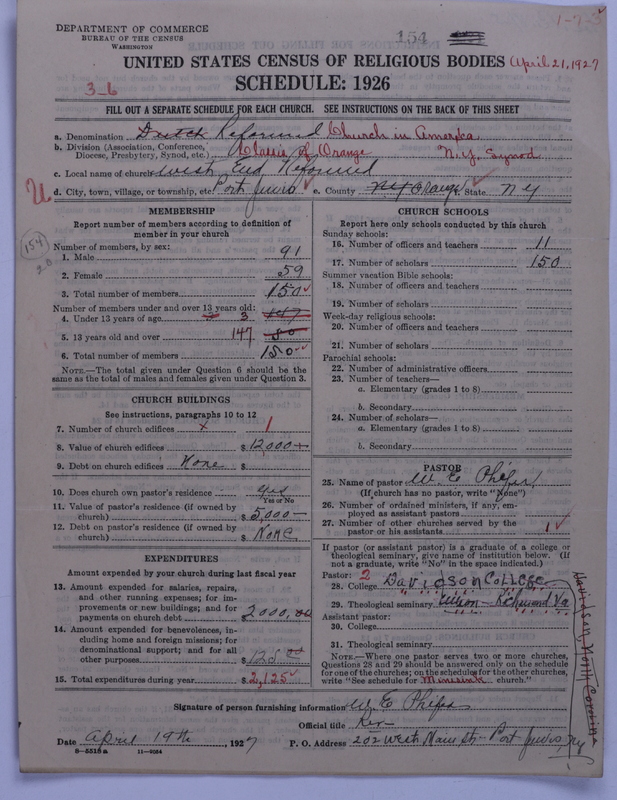 DEPARTMENT OF COMMERCE
BUREAU OF THE CENSUS
WASHINGTON
154
1-7-3
UNITED STATES CENSUS OF RELIGIOUS BODIES
April 21, 1927
SCHEDULE: 1926
3-6
FILL OUT A SEPARATE SCHEDULE FOR EACH CHURCH. SEE INSTRUCTIONS ON THE BACK OF THIS SHEET
a. Denomination Dutch Reformed Church in America
b. Division (Association, Conference, Diocese, Presbytery, Synod, etc.) Classis of Orange N.Y. Synod
c. Local name of church West End Reformed
U
d. City, town, village, or township, etc. Port Jervis e. County Orange f. State NY
MEMBERSHIP
Report number of members according to definition of
member in your church
154
Number of members, by sex:
1. Male 91
2. Female 59
3. Total number of members 150
Number of members under and over 13 years old:
4. Under 13 years of age 3 147
5. 13 years old and over 147 80
6. Total number of members 150
NOTE.—The total given under Question 6 should be the
same as the total of males and females given under Question 3.
CHURCH BUILDINGS
See instructions, paragraphs 10 to 12
7. Number of church edifices x 1
8. Value of church edifices $ 12,000
9. Debt on church edifices None $
10. Does church own pastor's residence yes
Yes or No
11. Value of pastor's residence (if owned by
church) $ 5,000
12. Debt on pastor's residence (if owned by
church) $ None
EXPENDITURES
Amount expended by your church during last fiscal year
13. Amount expended for salaries, repairs,
and other running expenses; for im-
provements or new buildings; and for
payments on church debt 2000.00
14. Amount expended for benevolences, in-
cluding home and foreign missions; for
denominational support; and for all
other purposes $ 125.00
15. Total expenditures during year $ 2,125
CHURCH SCHOOLS
Report here only schools conducted by this church
Sunday schools:
16. Number of officers and teachers 11
17. Number of scholars 150
Summer vacation Bible schools:
18. Number of officers and teachers
19. Number of scholars
Week-day religious schools:
20. Number of officers and teachers
21. Number of scholars
Parochial schools:
22. Number of administrative officers
23. Number of teachers—
a. Elementary (grades 1 to 8)
b. Secondary
24. Number of scholars—
a. Elementary (grades 1 to 8)
b. Secondary
PASTOR
25. Name of pastor W. E. Phifer
(If church has no pastor, write "None")
26. Number of ordained ministers, if any, em-
ployed as assistant pastors
27. Number of other churches served by the
pastor or his assistants 1
If pastor (or assistant pastor) is a graduate of a college or
theological seminary, give name of institution below. (If
not a graduate, write "No" in the space indicated.)
Pastor: 2
28. College Davidson College
29. Theological seminary Union - Richmond Va
Assistant pastor:
30. College
31. Theological seminary
NOTE.—Where one pastor serves two or more churches,
Questions 28 and 29 should be answered only on the schedule
for one of the churches; on the schedules for the other churches,
write "See schedule for Minisink church."
Davidson North Carolina
Signature of person furnishing information W E Phifer
Official title Rev
Date April 19th, 1927 P. O. Address 202 West Main St - Port Jervis, NY
8-5515a 11-9084